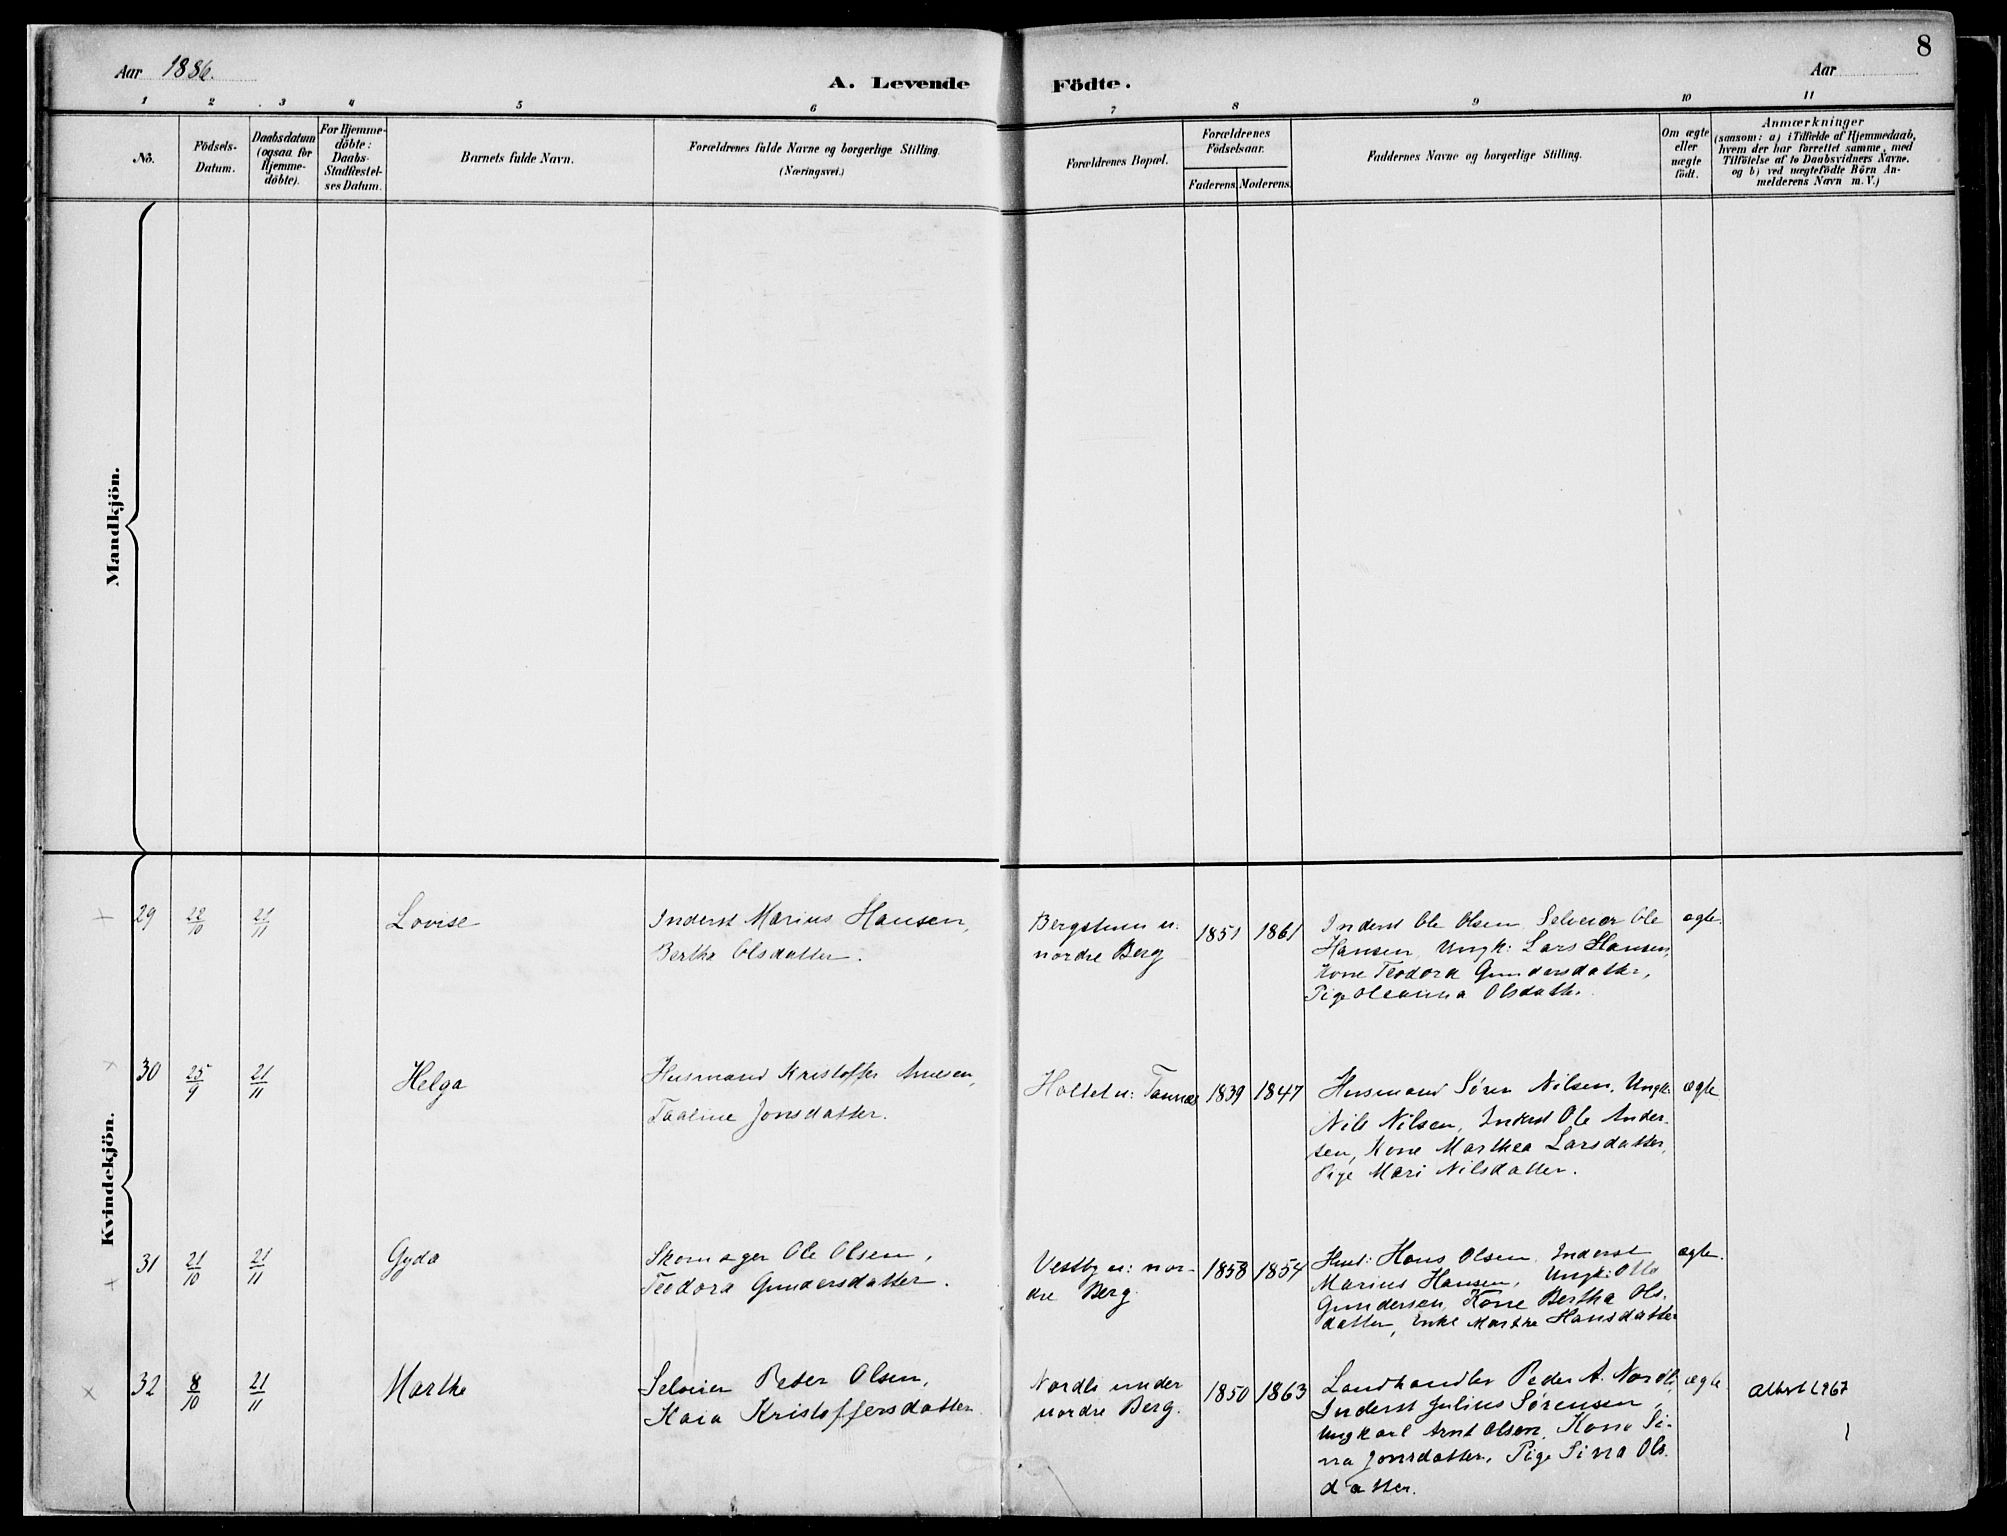 8
Aar 1886.
A. Levende Födte.
Aar
1 2 3 4 5 6 7 8 9 10 11
No.
Födsels-Datum.
Daabsdatum (ogsaa for Hjemme-döbte).
For Hjemme-döbte: Daabs-Stadfæstel-ses Datum.
Barnets fulde Navn.
Forældrenes fulde Navne og borgerlige Stilling.
(Næringsvei.)
Forældrenes Bopæl.
Forældrenes Födselsaar.
Faderens. Moderens.
Faddernes Navne og borgerlige Stilling.
Om ægte eller uægte födt.
Anmærkninger
(saasom: a) i Tilfælde af Hjemmedaab,
hvem der har forrettet samme, med
Tilföielse af to Daabsvidners Navne.
og b) ved uægtefödte Börn An-
melderens Navn m. V.)
Mandkjön.
Kvindekjön.
29 28/10 21/11 Lovise
Inderst Marius Hansen,
Bertha Olsdatter.
Bergstuen u:
nordre Berg
1851 1861
Inderst Ole Olsen, Selveier Ole
Hansen, Ungk: Lars Hansen,
Kone Teodora Gundersdatter,
Pige Oleanna Olsdatte.
ægte.
30 25/9 21/11 Helga
Husmand Kristoffer Arnesen,
Taaline Jonsdatter.
Holtet u: Taunæs
1839 1847
Husmand Sören Nilsen, Ungk:
Nils Nilsen, Inderst Ole Ander-
sen, Kone Marthea Larsdatter,
Pige Mari Nilsdatter.
ægte
31 21/10 21/11 Gyda
Skomager Ole Olsen,
Teodora Gundersdatter.
Vestby u: nor-
dre Berg.
1858 1854
Husm: Hans Olsen, Inderst
Marius Hansen, Ungk: Otto
Gundersen, Kone Bertha Ols-
datter, Enke Marthe Hansdatter
ægte.
32 8/10 21/11 Marthe
Selveier Peder Olsen,
Kaia Kristoffersdatter.
Nordli under
nordre Berg.
1850 1863
Landhandler Peder A. Nordli,
Inderst Julius Sörensen,
Ungkarl Arnt Olsen, Kone Si-
na Jonsdatter, Pige Sina Ols-
datter.
ægte
Attest 1967